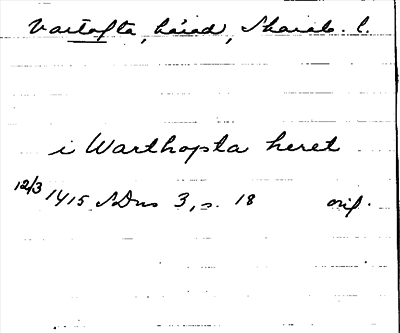 Vartofta, härad, Skarab. l.
i Warthopta heret
12/3 1415 SDns 3, s. 18 orig.